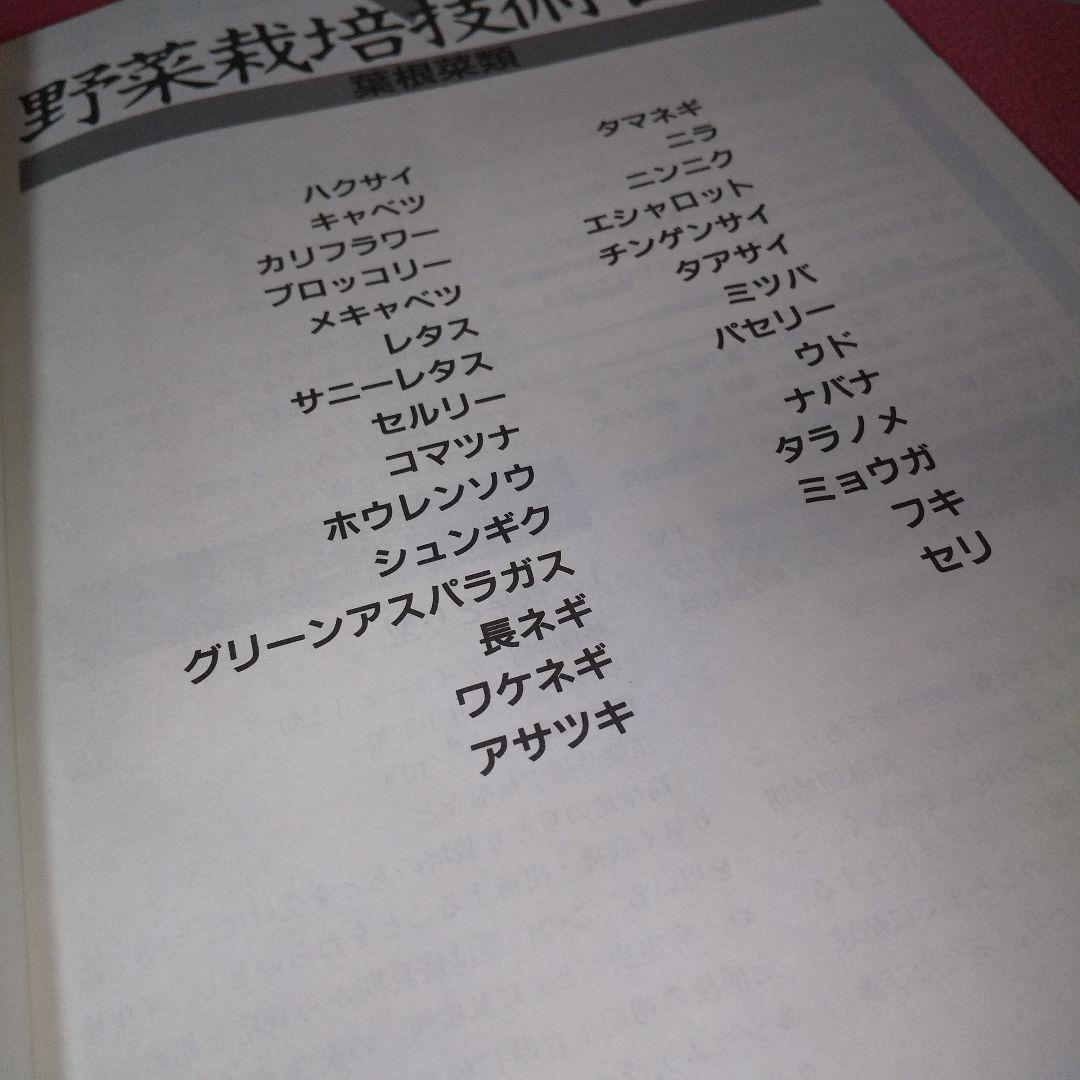 野菜栽培技術
葉根菜類
ハクサイ
キャベツ
カリフラワー
ブロッコリー
メキャベツ
レタス
サニーレタス
セルリー
コマツナ
ホウレンソウ
シュンギク
グリーンアスパラガス
長ネギ
ワケネギ
アサツキ
タマネギ
ニラ
ニンニク
エシャロット
チンゲンサイ
タアサイ
ミツバ
パセリー
ウド
ナバナ
タラノメ
ミョウガ
フキ
セリ